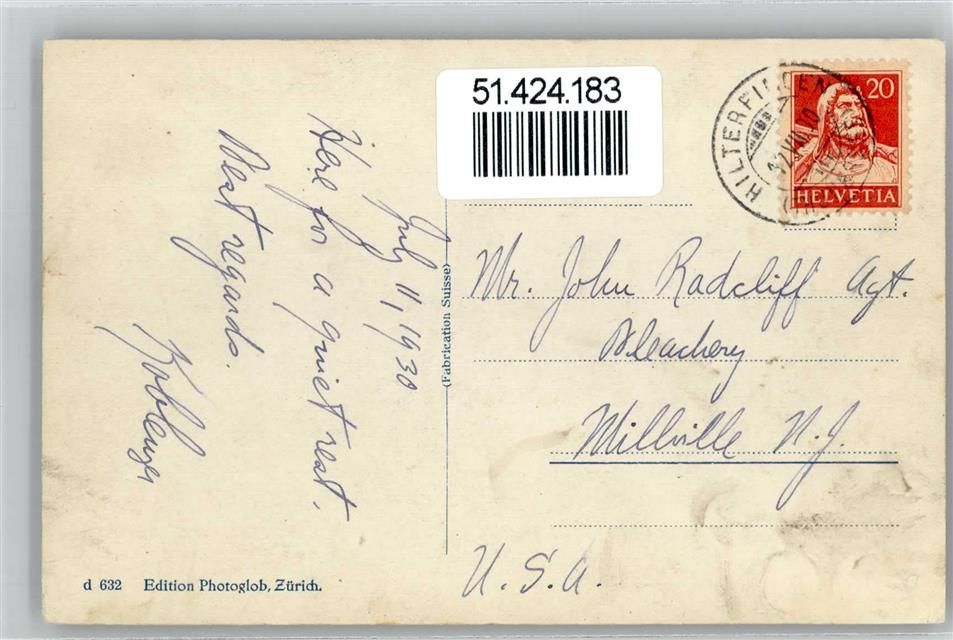 51.424.183
HILTERFINGEN
20
HELVETIA
July 11, 1930
Here for a quiet rest.
Best regards.
(Fabrication Suisse)
Mr. John Radcliff Agt.
Bleachery
Millville N.J.
U.S.A.
d 632 Edition Photoglob, Zürich.